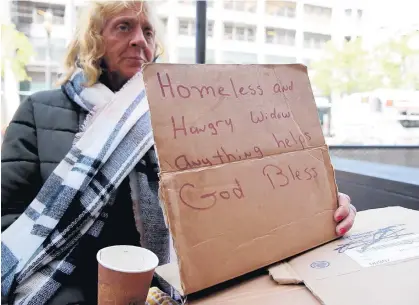 Homeless and
Hungry Widow
anything helps
God Bless